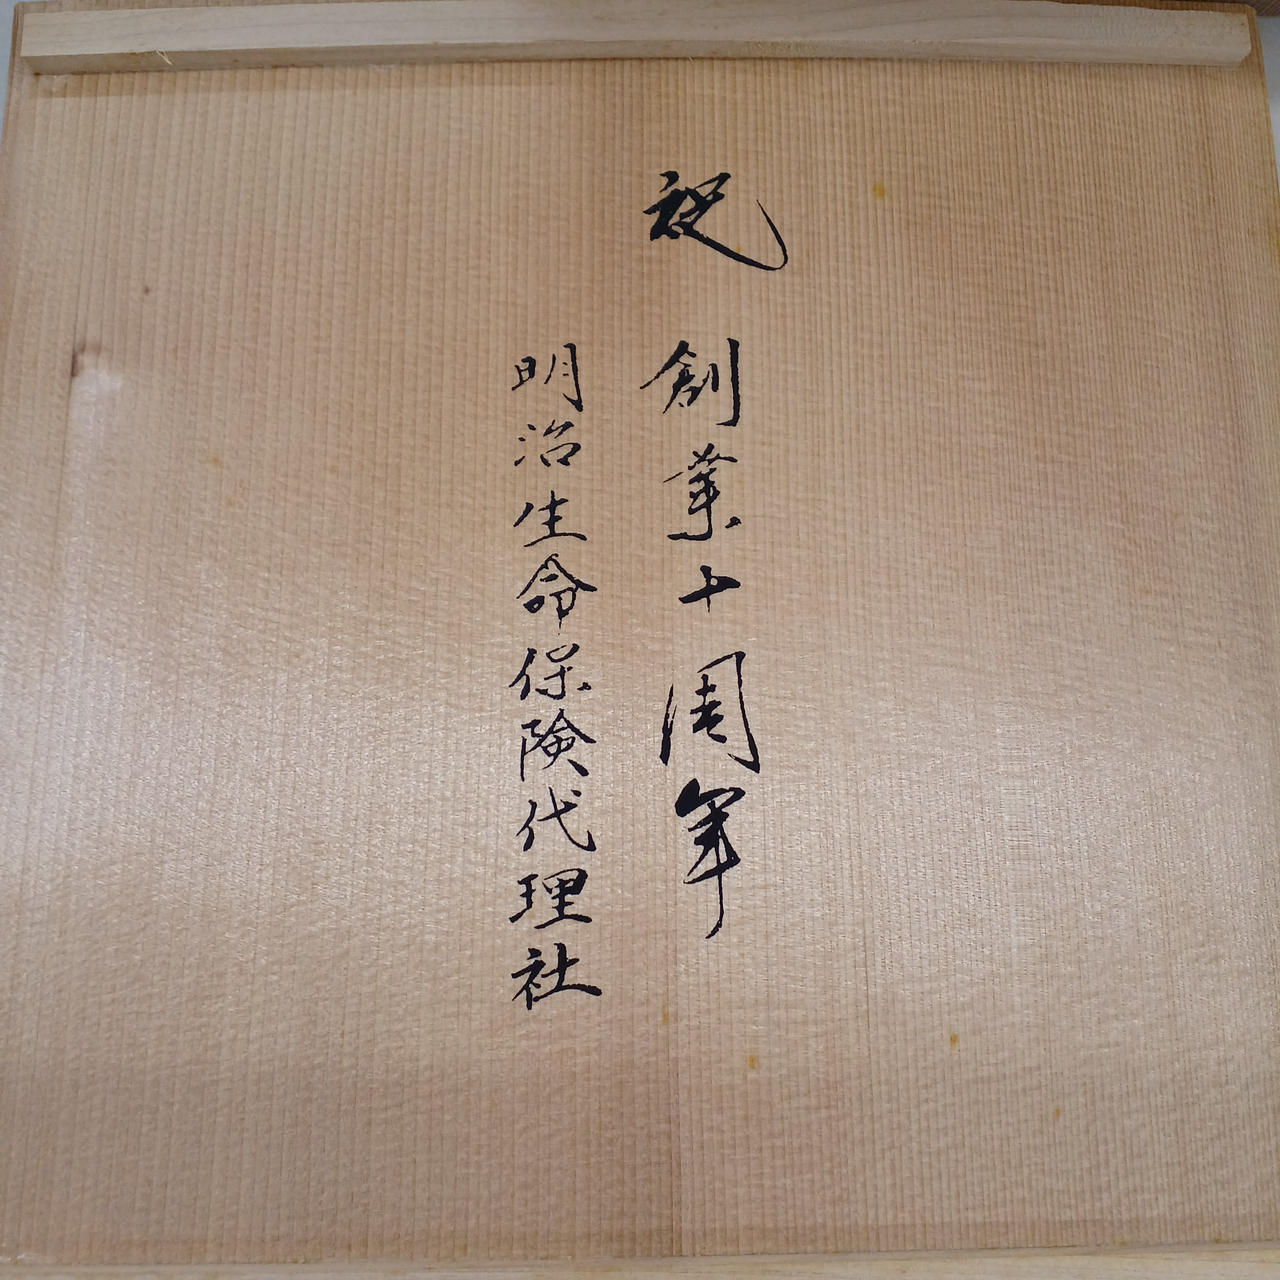 祝 創業十周年
明治生命保険代理社